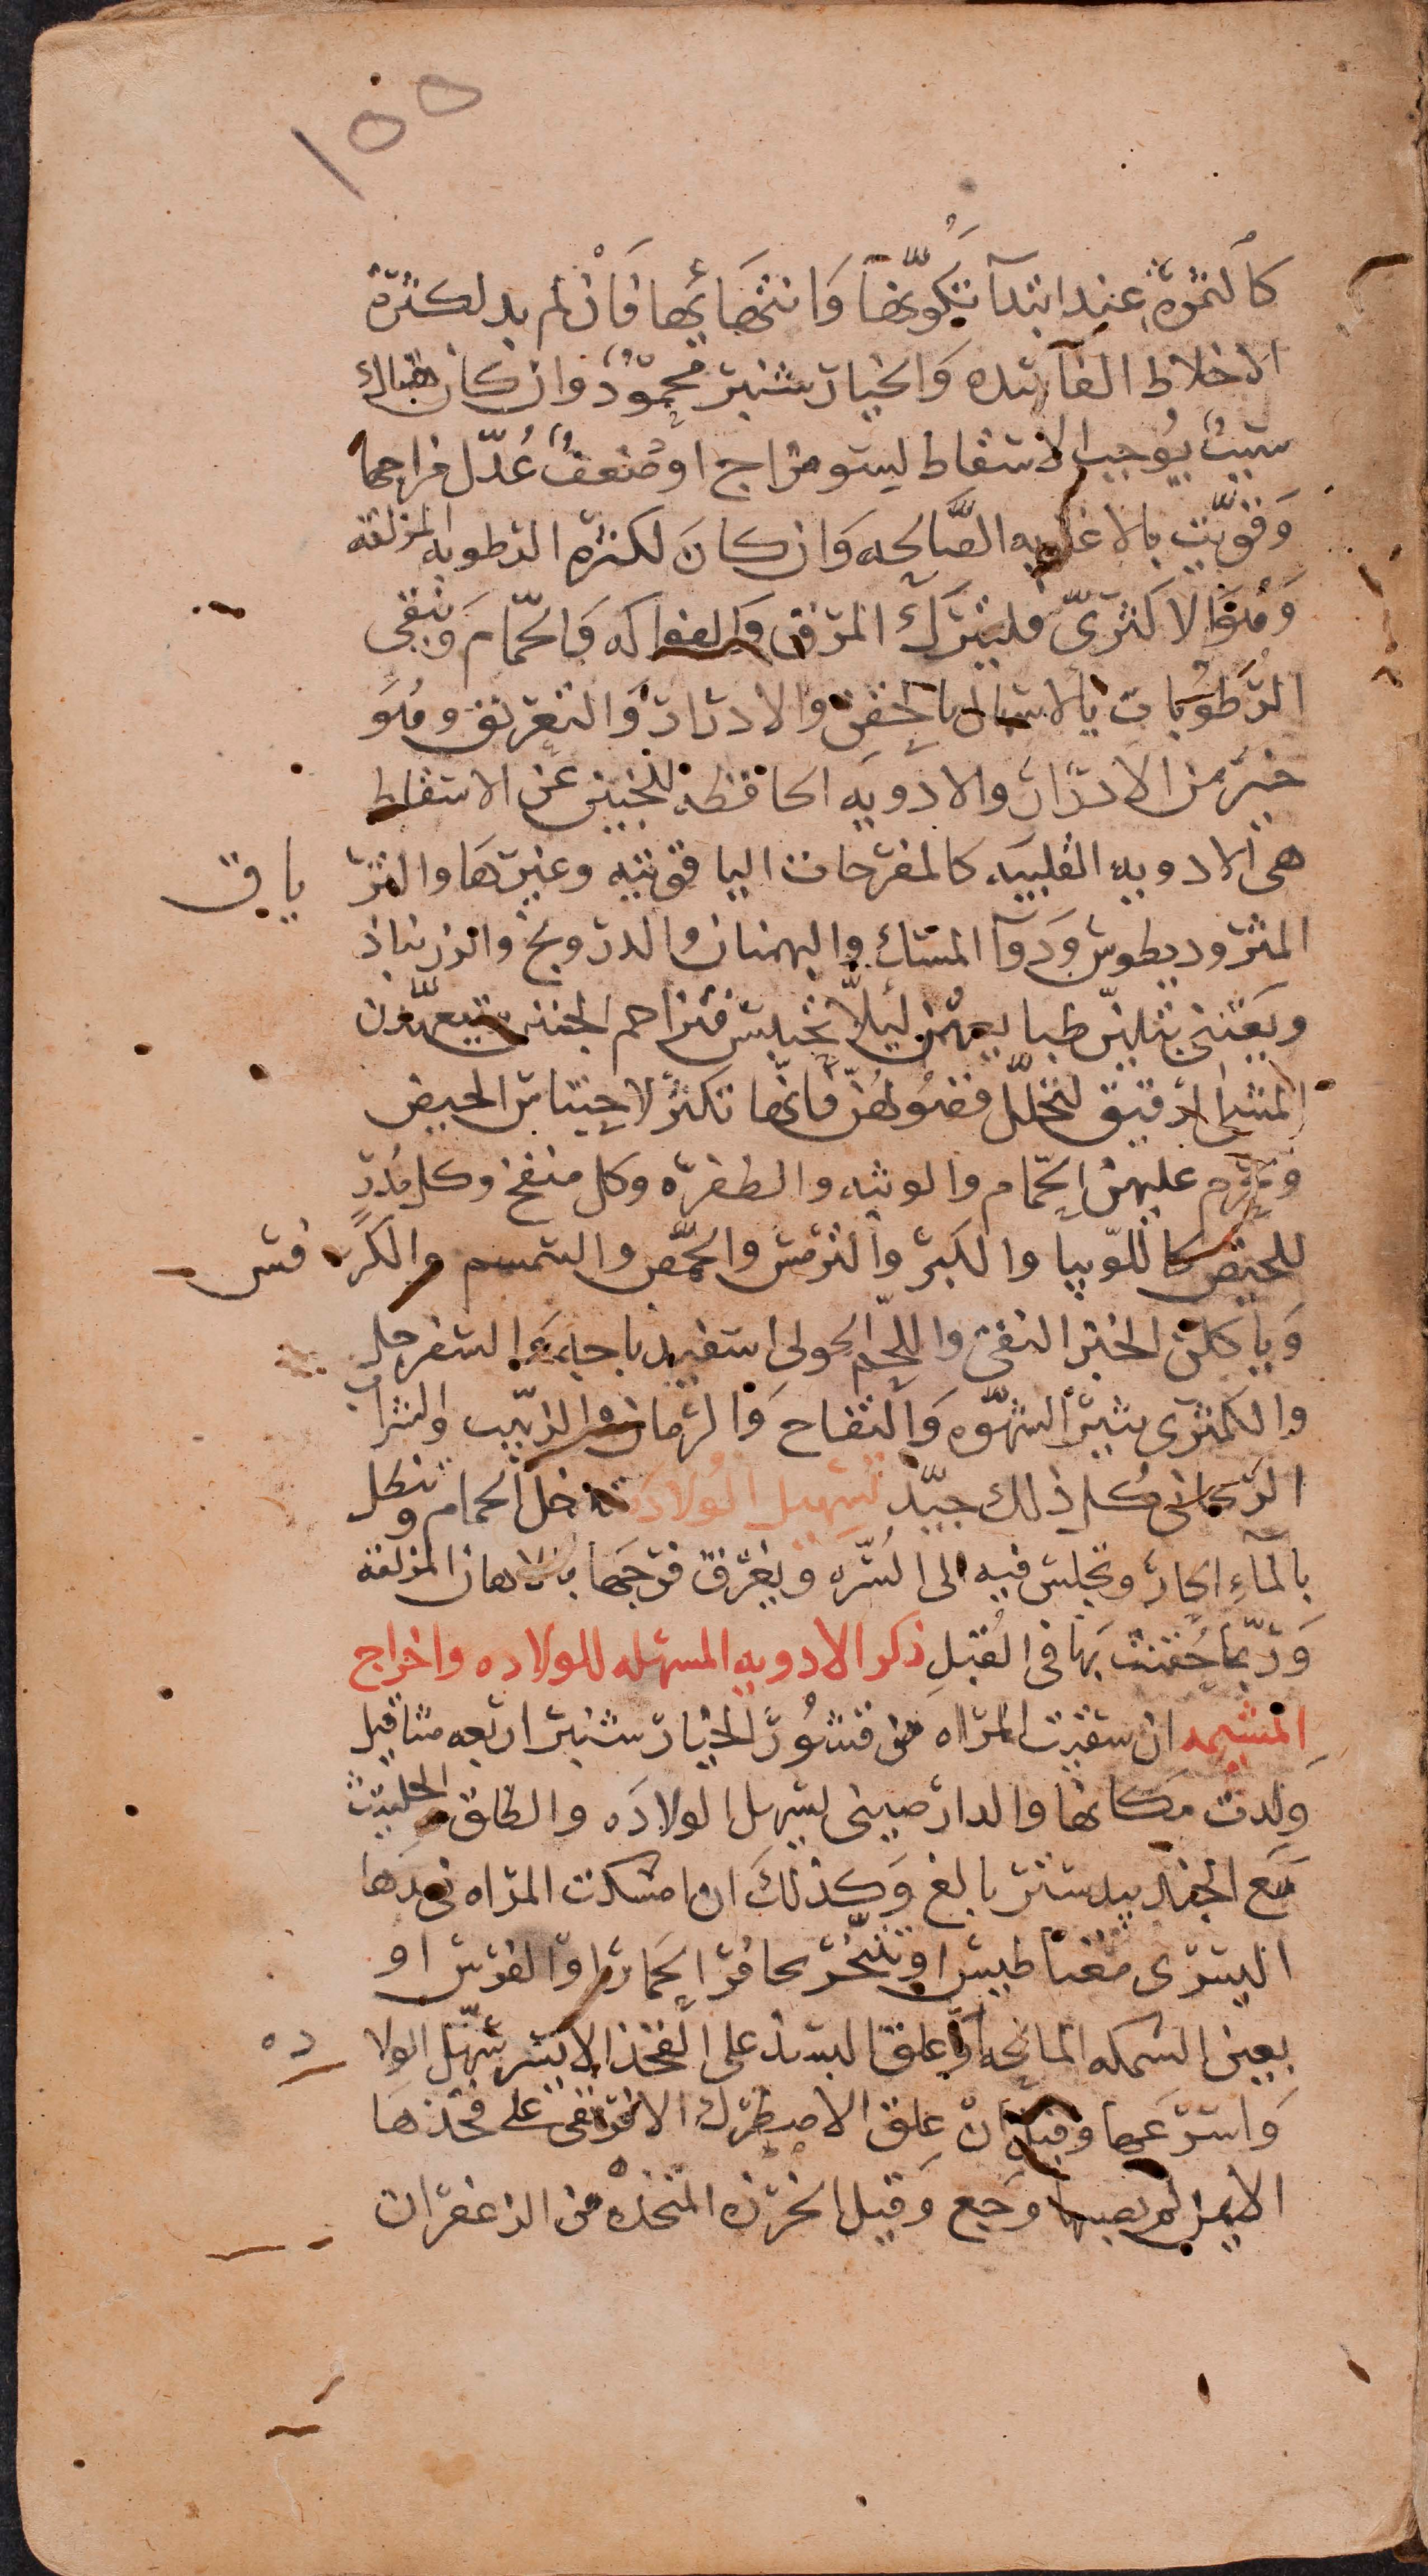 ١٥٥
كالثمرة عند ابتدآ تكوّنها وانتهائها فان لم بد لكثرة
الاخلاط الفاسده والخيارشنبر محمودٌ وان كان هناك
سببٌ يوجب الاسقاط ليسو مزاج او ضعفٌ عُدّل مزاجها
وقوّيت بالاغذيه الصّالحه وان كانَ لكثرة الرطوبه المزلقه
وهوَ الاكثريّ فليترك المرق والفواكه والحمّام وتنقى
الرّطوبات بالاسهال بالحقن والادرار والتعريق وهو
خير من الادرار والادويه الحافظه للجنين عن الاسقاط
هى الادويه القلبيه كالمفرحات الياقوتيه وغيرها والتر ياق
المثروديطوس ودوآ المسك والبهمنان والدرونج والزرنباذ
ويعتنى بتليين طبايعهن ليلّا تحبس فتزاحم الجنين ويتعهّدن
المشى الرقيق لتحلّل فضولهنّ فانّها تكثر لاحتباس الحيض
ويحرم عليهن الحمّام والوثبه والطفره وكل منفخ وكل مُدرٍّ
للحيض كاللّوبيا والكبر والترمس والحمّص والسمسم والكر فس
وياكلن الخبز النقى واللحم الحولى اسفيدباجه والسفرجل
والكمثرى يثير الشهّوه والتفاح والرمان والزبيب والشراب
الريحانى كل ذلك جيّد تسهيل الولاده تدخل الحمام وتنطل
بالمآء الحار وتجلس فيه الى السّره ويغرق فرجها بالادهان المزلقه
وربّما حُقنت بها فى القُبلِ ذكر الادويه المسهله للولاده واخراج
المشيمه ان سقيت المراه من قشور الخيارشنبر اربعه مثاقيل
ولدت مكانها والدارصينى يسهل الولاده والطلق الحلتيت
مع الجندبيدستر بالغ وكذلك ان امسكت المراه فى يدها
اليسرى مغناطيس او تبخّر بحافر الحمار او الفرس او
بعين السمكه المالحه او علق البسد على الفخذ الايسر سّهل الولا ده
واسرعها وقيل ان علق الاصطرك الافريقى على فخذها
الايمن لم يصبها وجع وقيل الخرزه المتخذه من الزعفران